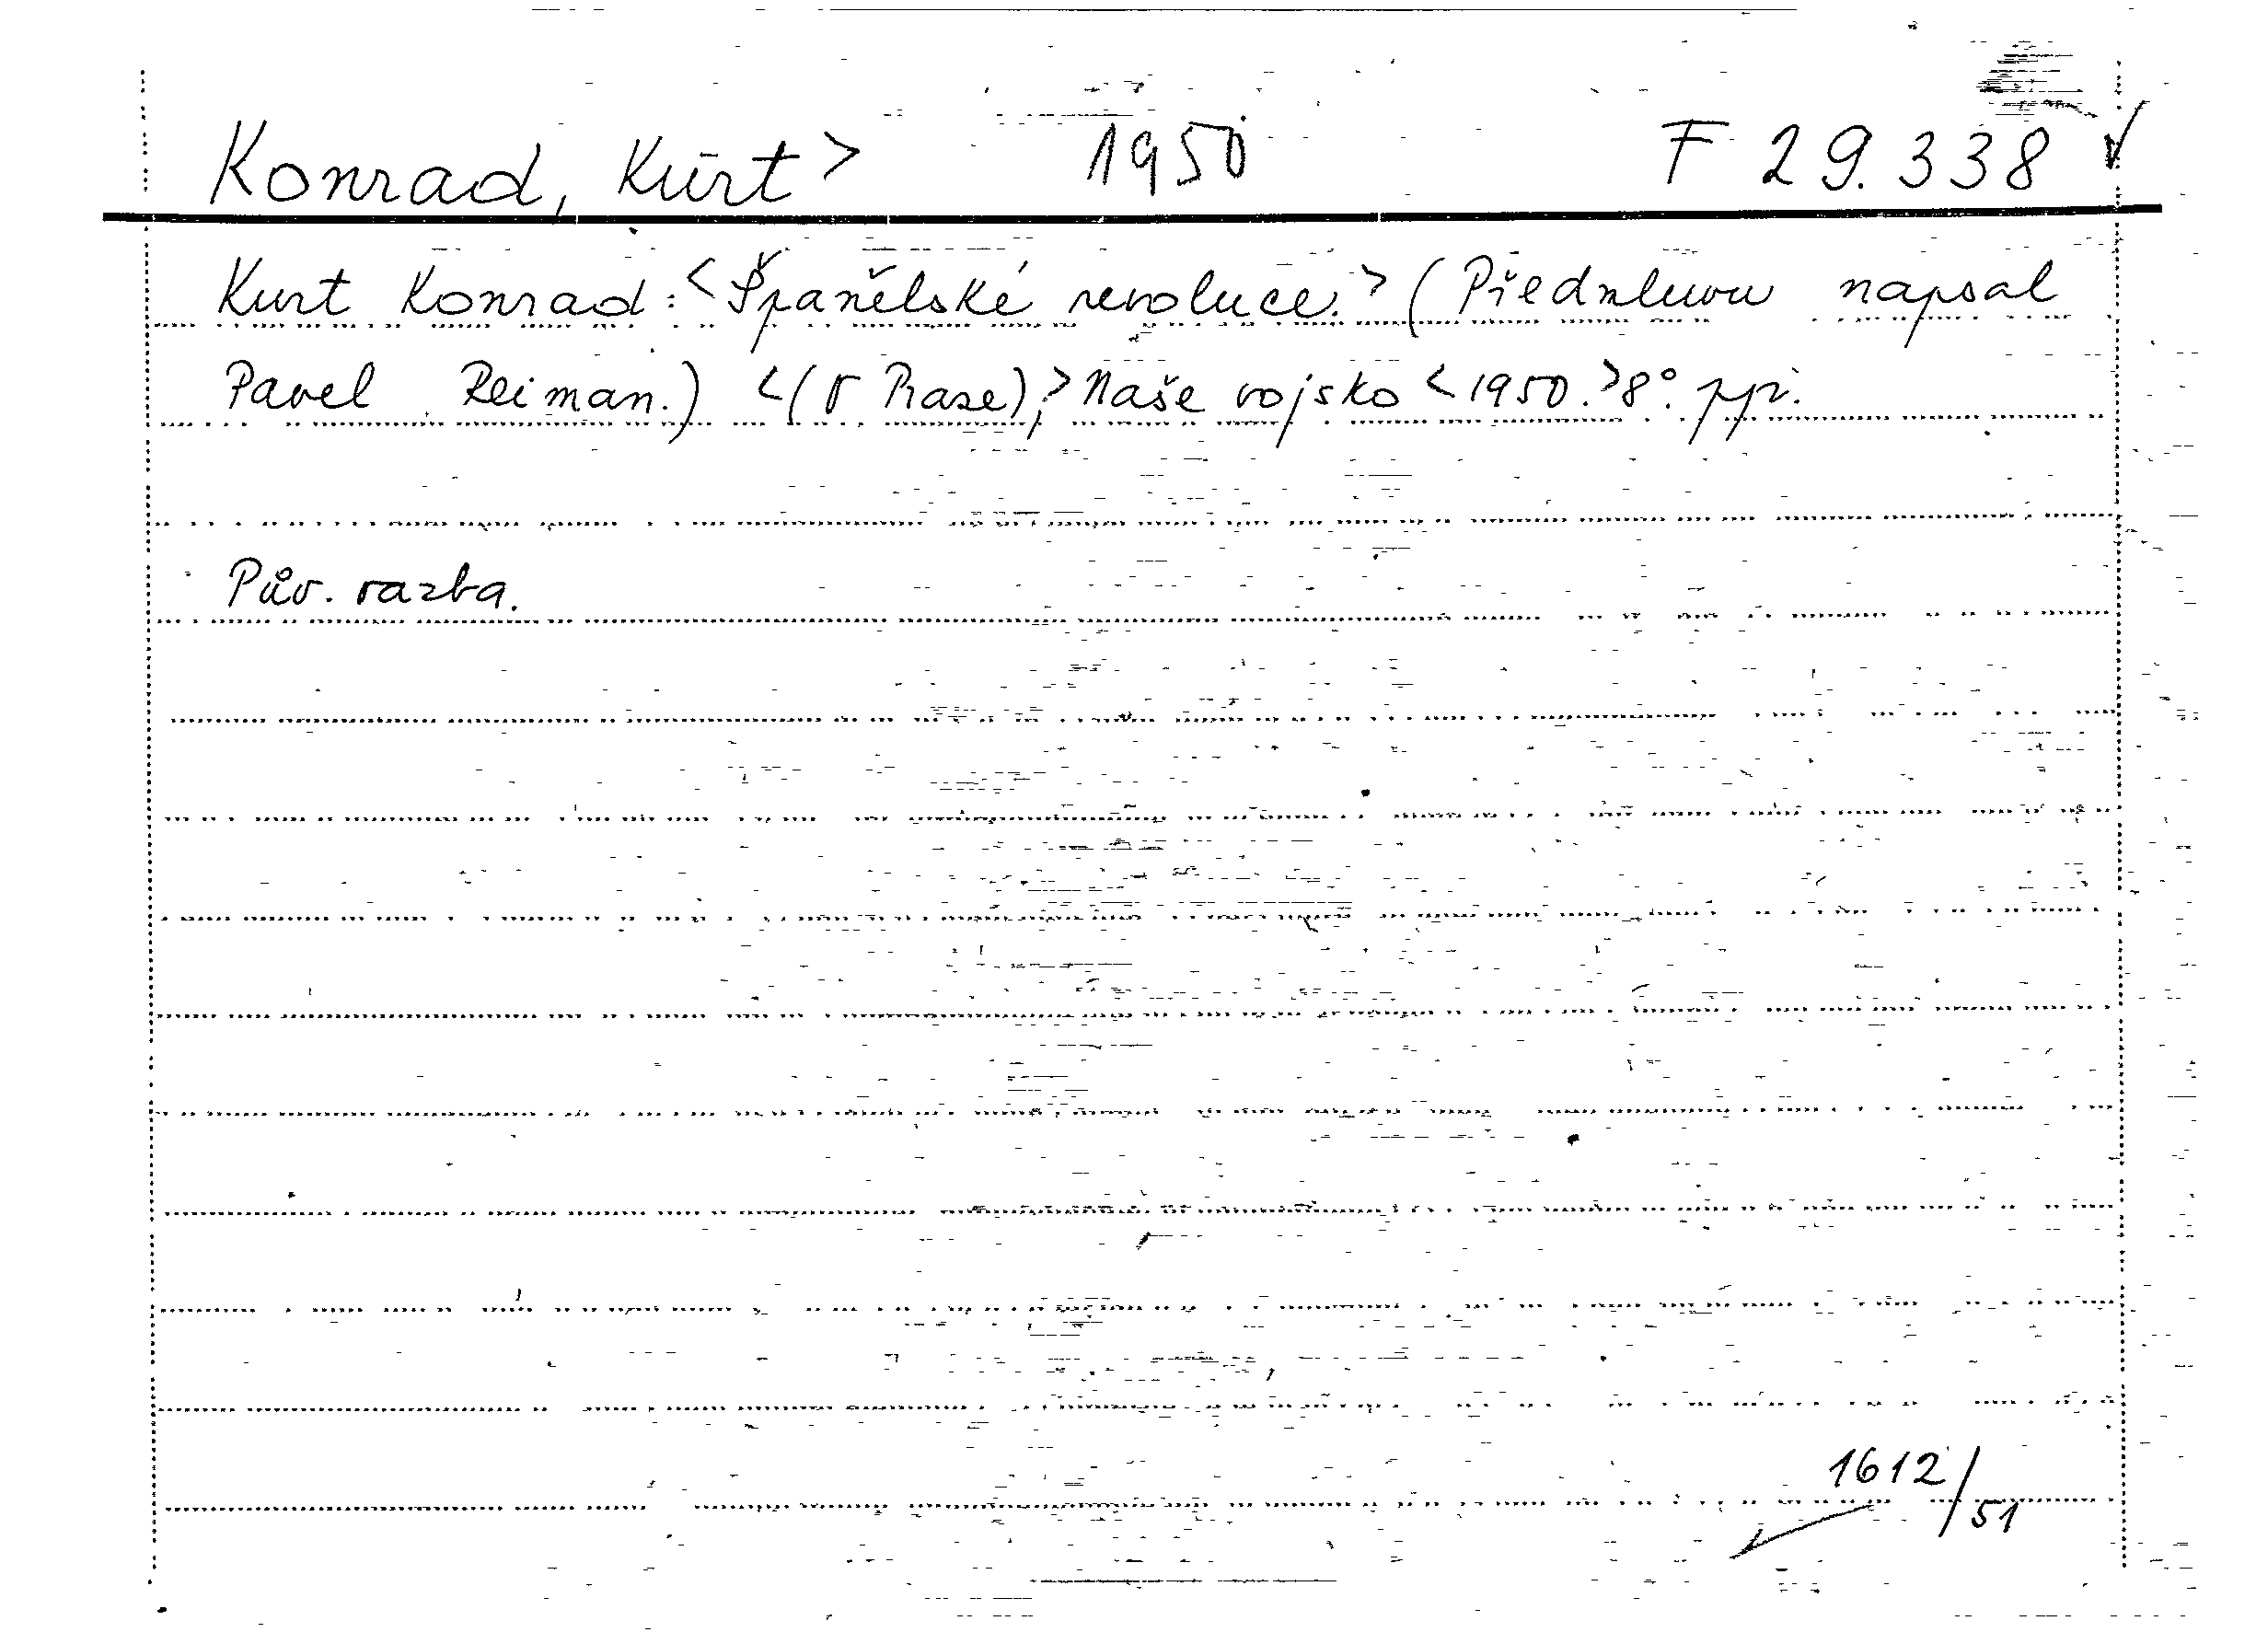 Konrad, Kurt > 1950 F 29.338
Kurt Konrad: <Španělské revoluce.> (Předmluvu napsal
Pavel Reiman.) <(V Praze),> Naše vojsko <1950.> 8°. ppi.
Pův. vazba.
1612/51